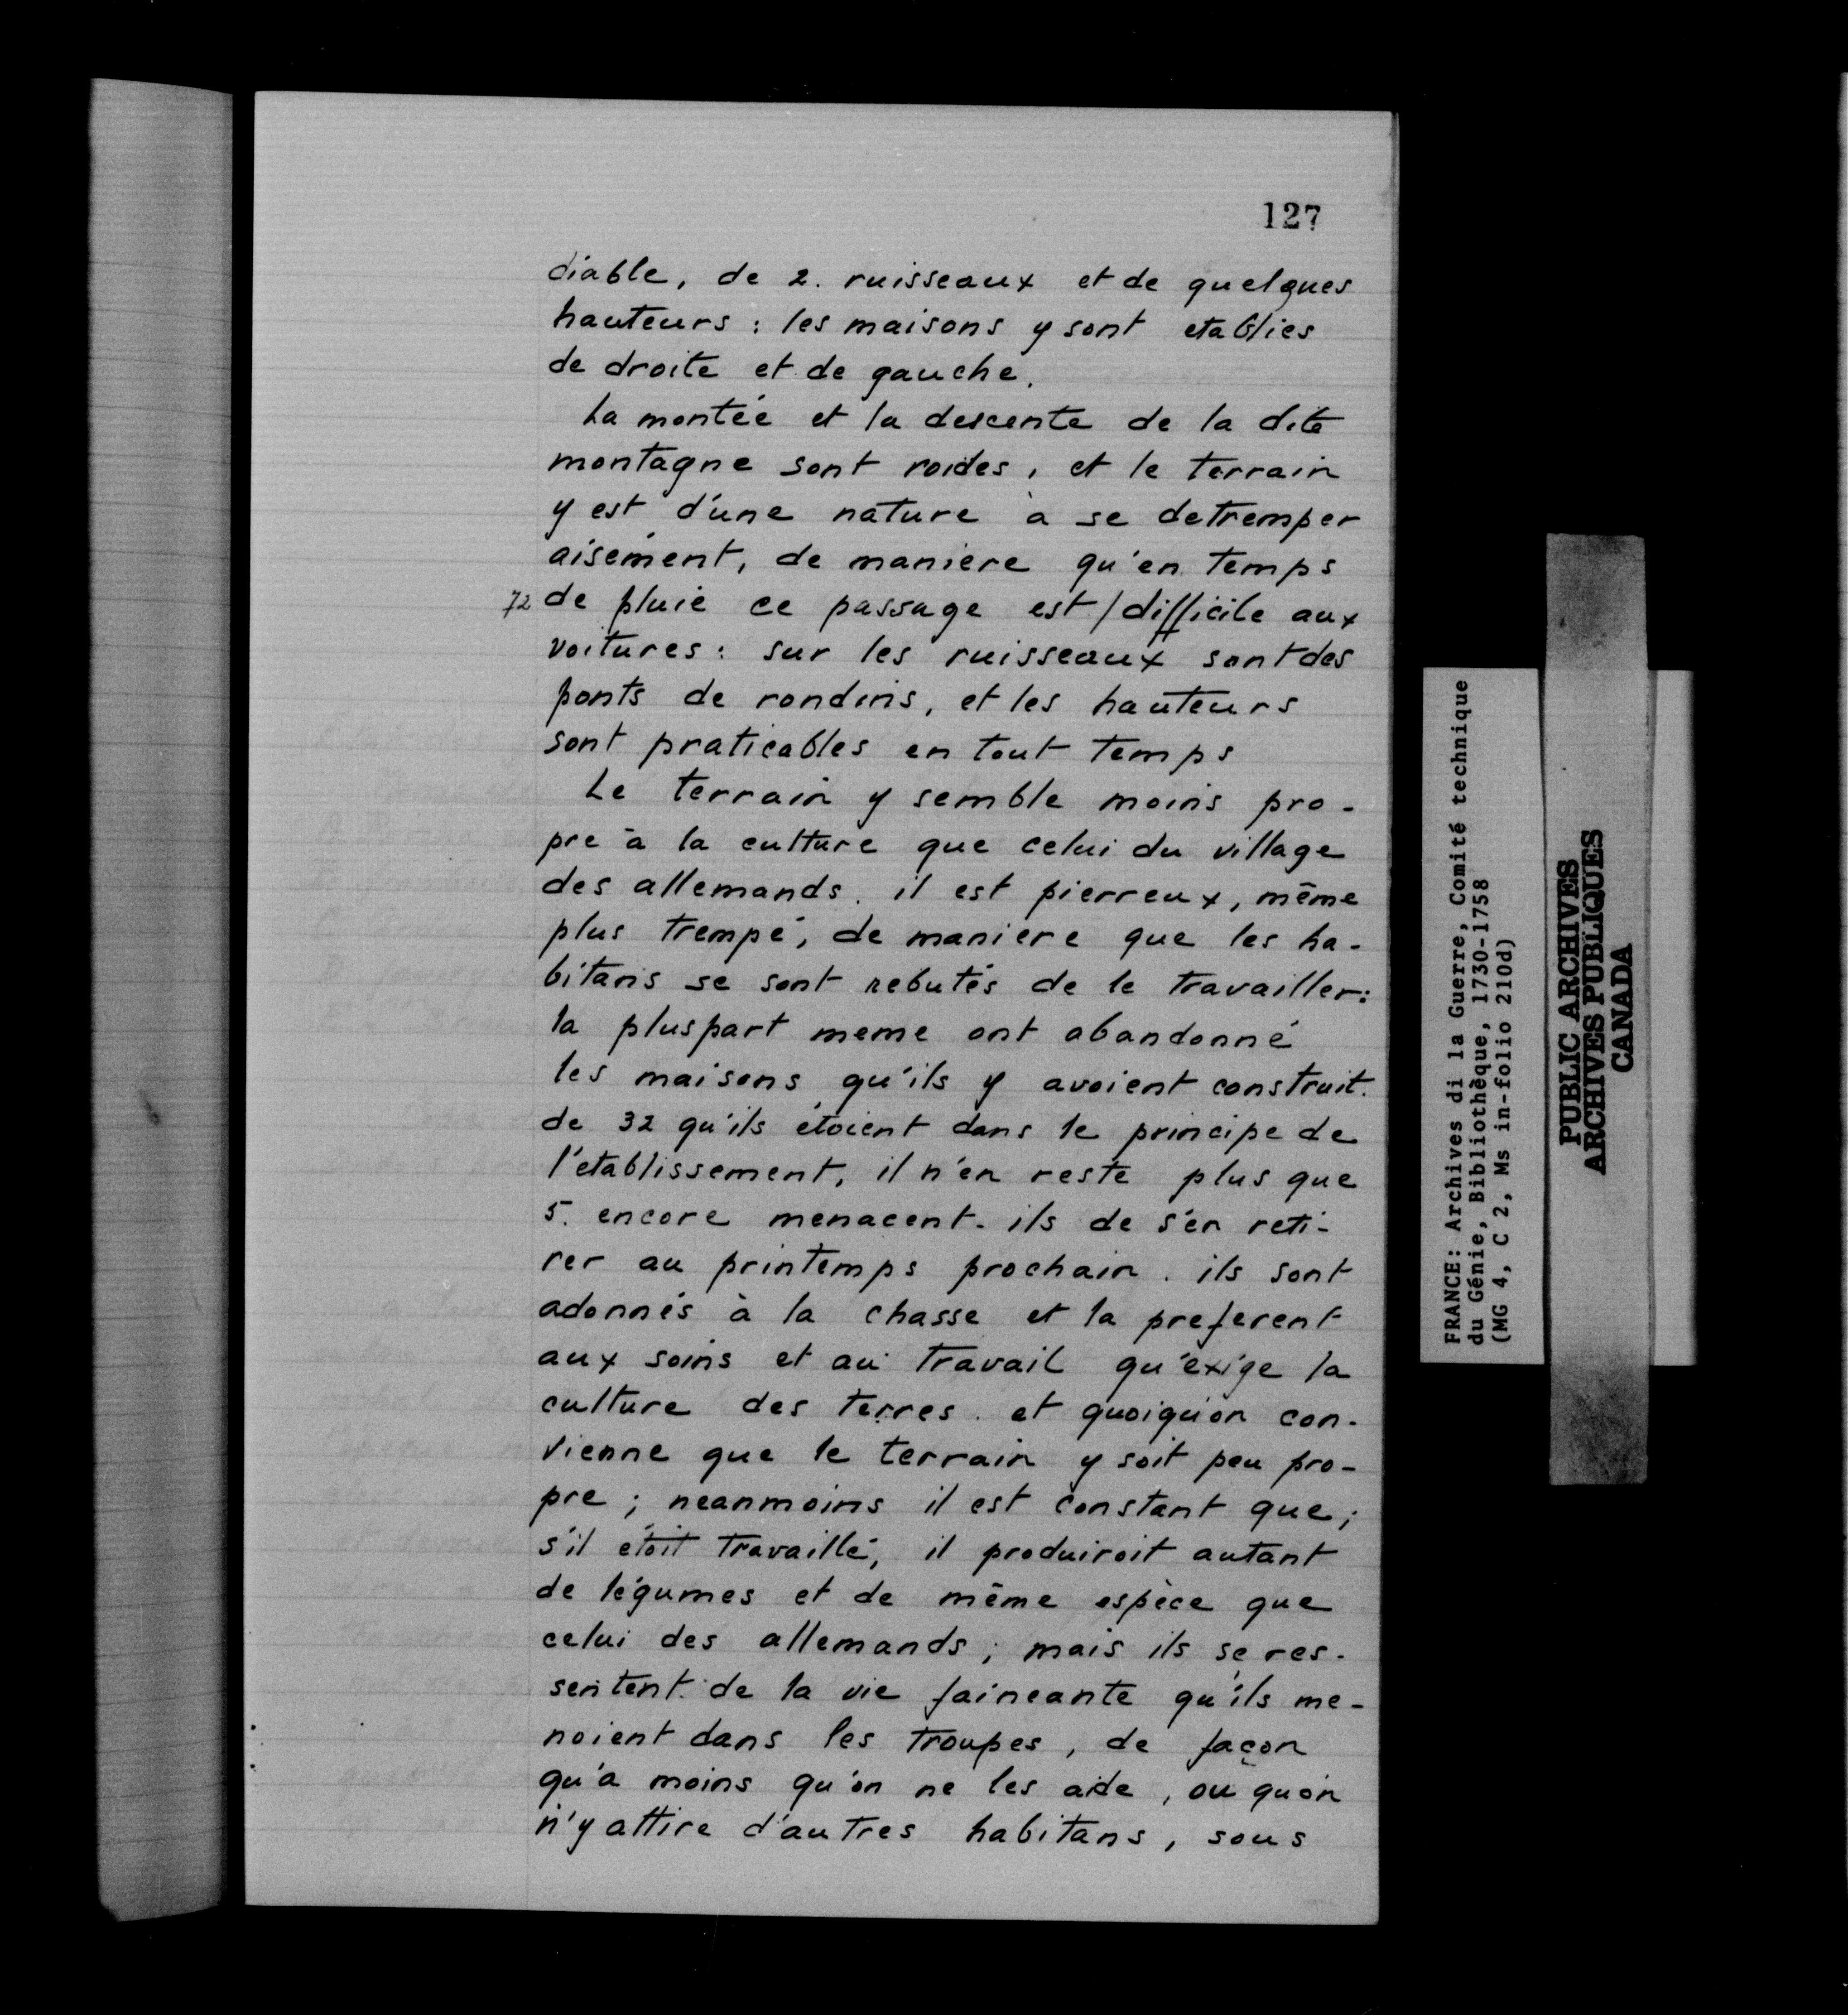 127
diable, de 2. ruisseaux et de quelques
hauteurs : les maisons y sont etablies
de droite et de gauche.
La montée et la descente de la dite
montagne sont roides, et le terrain
y est d'une nature à se detremper
aisément, de maniere qu'en temps
72 de pluie ce passage est / difficile aux
voitures : sur les ruisseaux sont des
ponts de rondins, et les hauteurs
sont praticables en tout temps
Le terrain y semble moins pro-
pre à la culture que celui du village
des allemands. il est pierreux, même
plus trempé, de maniere que les ha-
bitans se sont rebutés de le travailler :
la pluspart meme ont abandonné
les maisons qu'ils y avoient construit.
de 32 qu'ils étoient dans le principe de
l'etablissement, il n'en reste plus que
5. encore menacent-ils de s'en reti-
rer au printemps prochain. ils sont
adonnés à la chasse et la preferent
aux soins et au travail qu'exige la
culture des terres. et quoiqu'on con-
vienne que le terrain y soit peu pro-
pre ; neanmoins il est constant que,
s'il étoit travaillé, il produiroit autant
de légumes et de même espèce que
celui des allemands ; mais ils se res-
sentent de la vie faineante qu'ils me-
noient dans les troupes, de façon
qu'a moins qu'on ne les aide, ou qu'on
n'y attire d'autres habitans, sous
FRANCE: Archives di la Guerre, Comité technique
du Génie, Bibliothèque, 1730-1758
(MG 4, C 2, Ms in-folio 210d)
PUBLIC ARCHIVES
ARCHIVES PUBLIQUES
CANADA